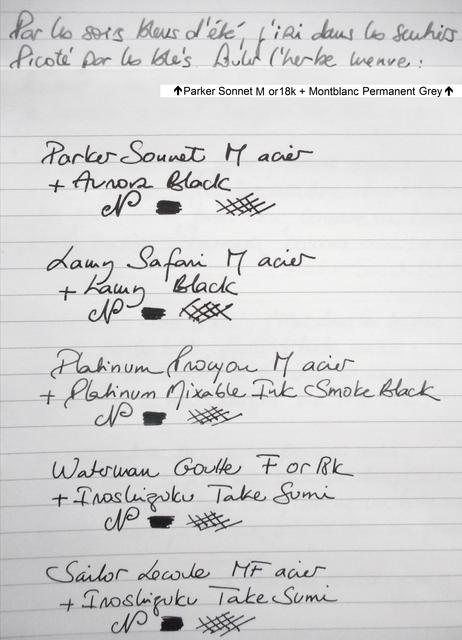 Par les soirs bleus d'été, j'irai dans les sentiers
Picoté par les blés. Fouler l'herbe menue :
↑Parker Sonnet M or18k + Montblanc Permanent Grey↑
Parker Sonnet M acier
+ Aurora Black
Lamy Safari M acier
+ Lamy Black
Platinum Procyon M acier
+ Platinum Mixable Ink Smoke Black
Waterman Goutte F or 18k
+ Iroshizuku Take Sumi
Sailor Lecoule MF acier
+ Iroshizuku Take Sumi